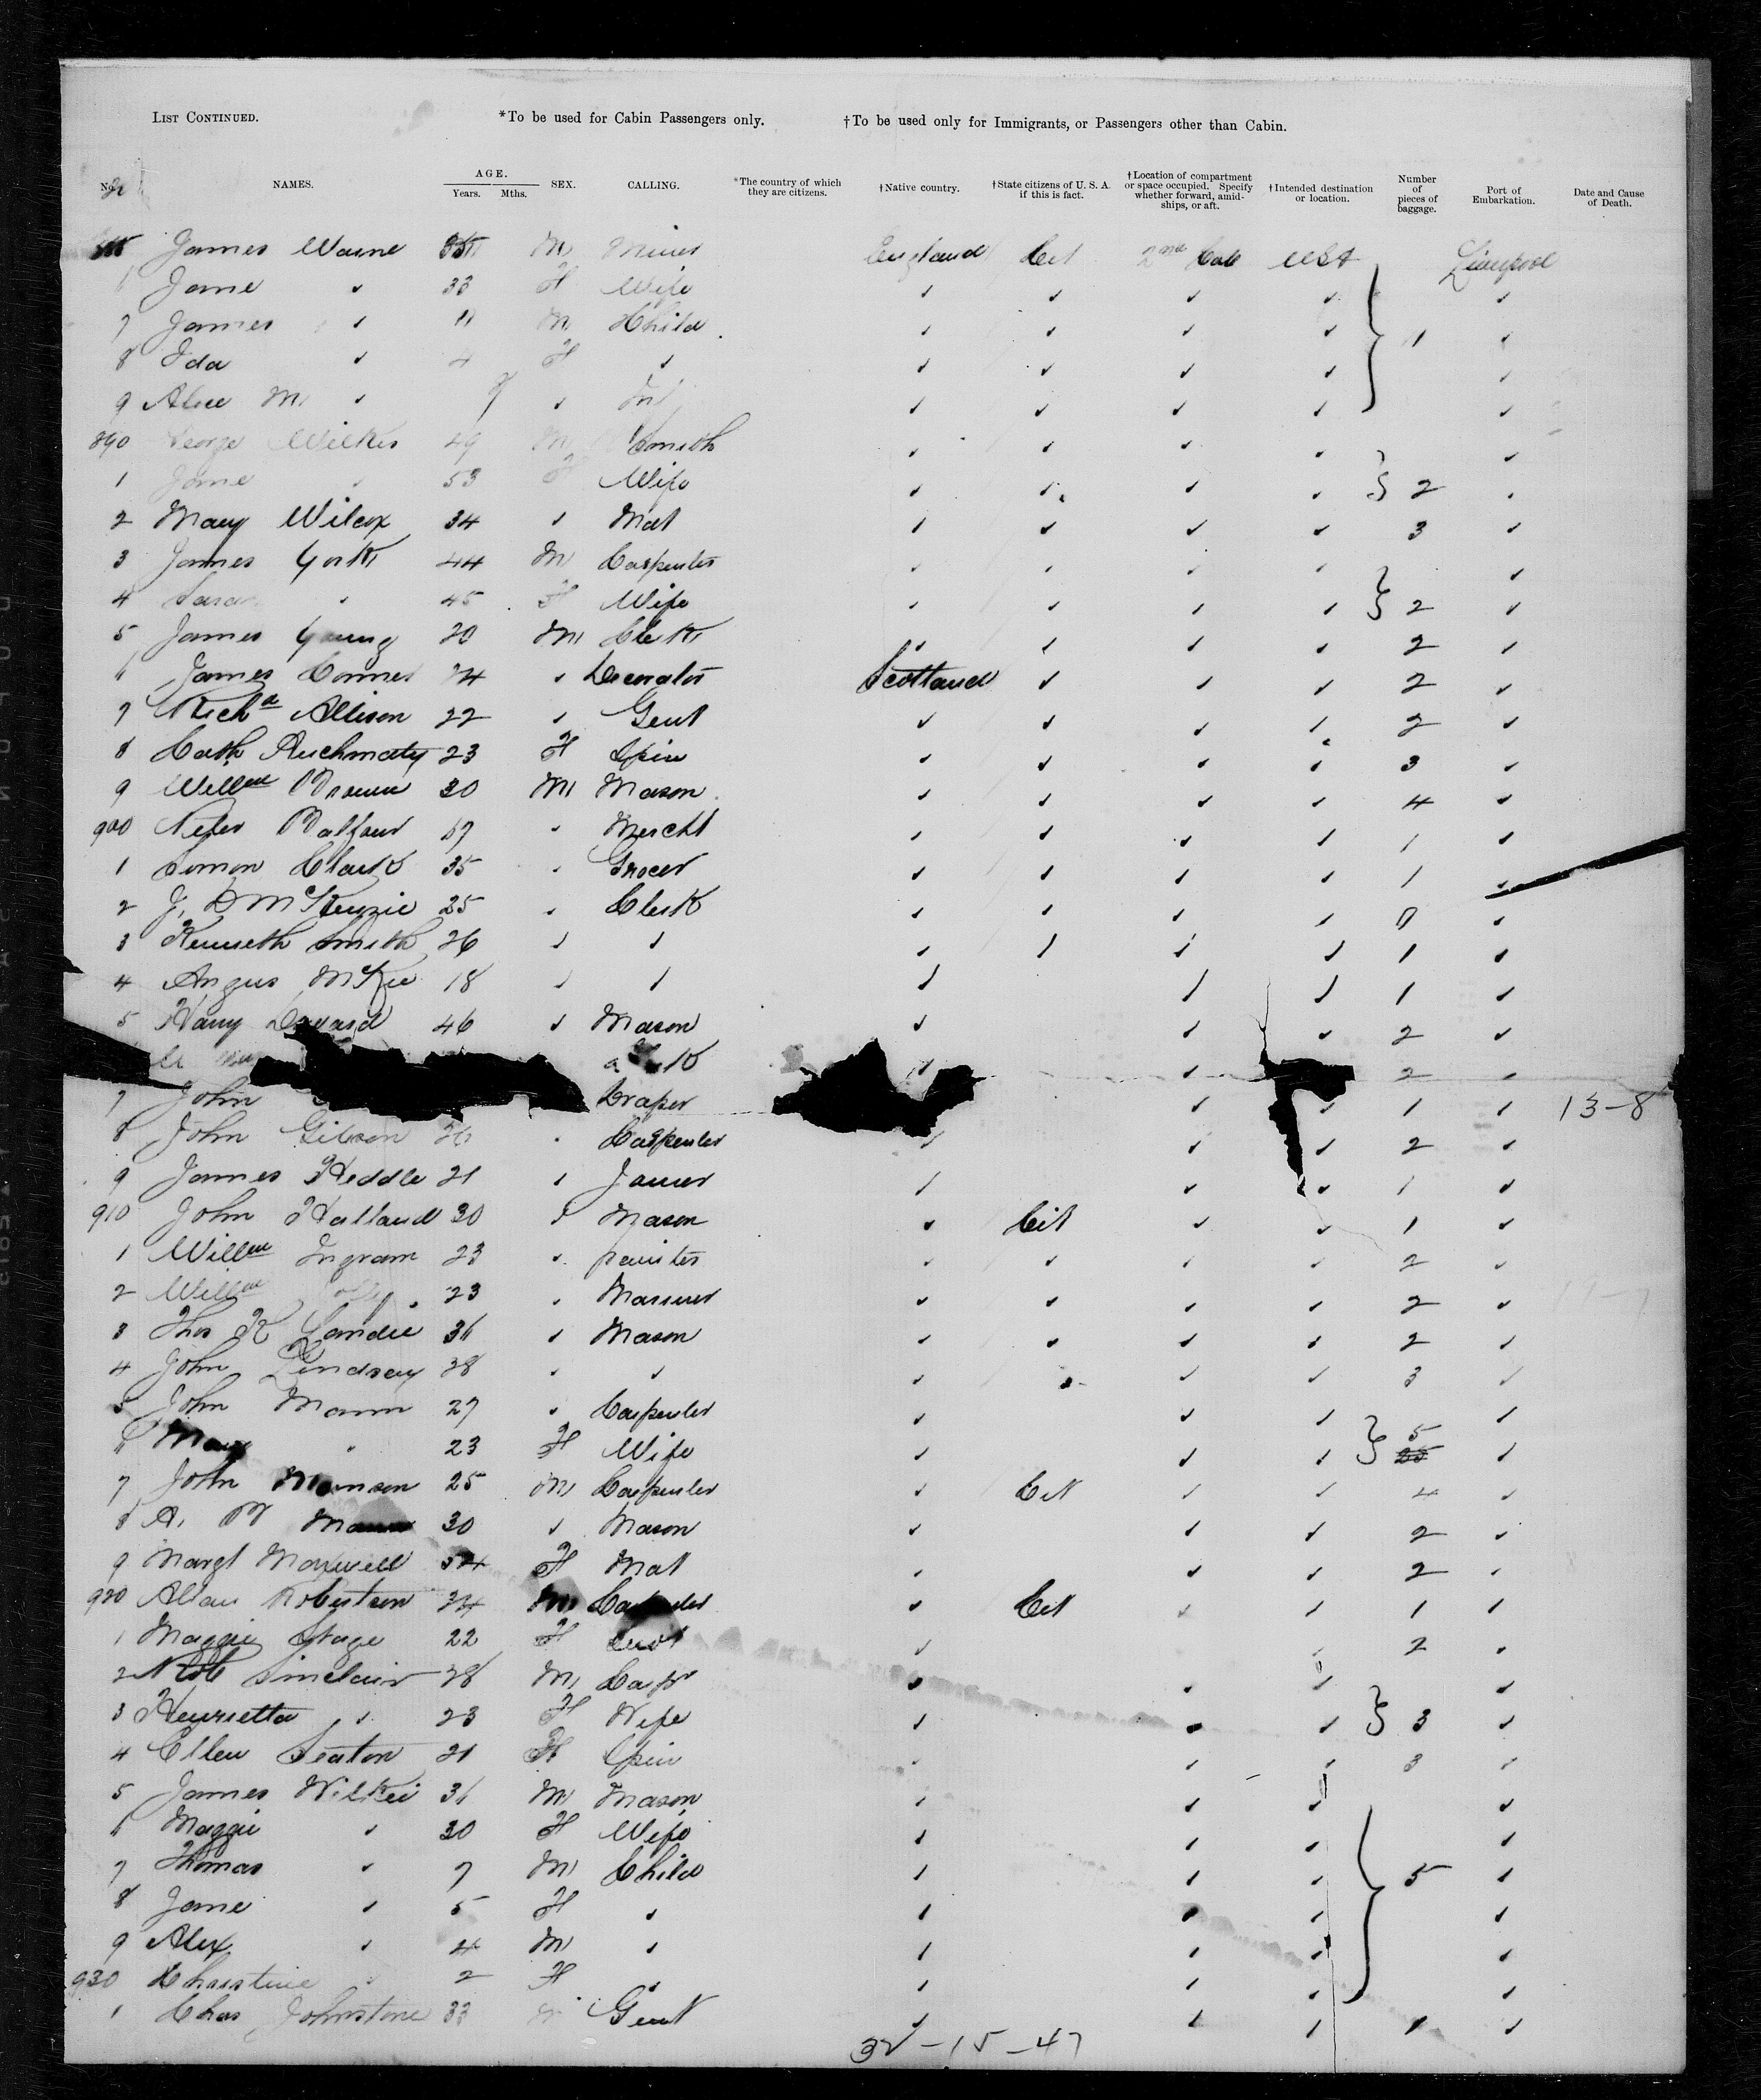 LIST CONTINUED. *To be used for Cabin Passengers only. †To be used only for Immigrants, or Passengers other than Cabin.
No. NAMES. AGE. Years. Mths. SEX. CALLING. *The country of which they are citizens. †Native country. †State citizens of U. S. A. if this is fact. †Location of compartment or space occupied. Specify whether forward, amidships, or aft. †Intended destination or location. Number of pieces of baggage. Port of Embarkation. Date and Cause of Death.
James M Miner England Cit 2nd Cab USA Liverpool
6 Jane " 33 F Wife
7 James " 11 M Child 1
8 Ida " 4 F "
9 Alice M " 9 " Inf
890 George Wilkes 49 M Smith
1 Jane " 53 F Wife 2
2 Mary Wilcox 34 " Mat 3
3 James York 44 M Carpenter
4 Sarah " 45 F Wife 2
5 James Young 20 M Clerk 2
6 James Conner 24 " Decorator Scotland 2
7 Richd Allison 22 " Gent 2
8 Cath Auchmaty 23 F Spin 3
9 Willm Brown 30 M Mason 4
900 Peter Balfour 67 " Mercht 1
1 Simon Clark 35 " Grocer 1
2 J. D McKenzie 25 " Clerk
3 Kenneth Smith 26 " " 1
4 Angus McKie 18 " " 1
5 Harry 46 " Mason 2
2
7 John Draper 1 13-8
8 John Gibson 26 " Carpenter 2
9 James Heddle 21 " Joiner 1
910 John Halland 30 " Mason Cit 1
1 Willm Ingram 23 " painter 2
2 Willm 23 " Mariner 2
3 Thos K Landie 36 " Mason 2
4 John Lindsay 28 " " 3
5 John Mann 27 " Carpenter
6 Mary " 23 F Wife 5
7 John Manson 25 M Carpenter Cit 4
8 A. W Mann 30 " Mason 2
9 Margt Maxwell 54 F Mat 2
920 Allan Robertson 24 M Carpenter Cit 1
1 Maggie 22 F 2
2 Robt Sinclair 28 M Carpr
3 Henrietta " 23 F Wife 3
4 Ellen Seaton 21 F Spin 3
5 James Wilkei 36 M Mason
6 Maggie " 30 F Wife
7 Thomas " 7 M Child 5
8 Jane " 5 F "
9 Alex " 4 M "
930 Christine " 2 F "
1 Chas Johnstone 33 M Gent 1
32-15-47